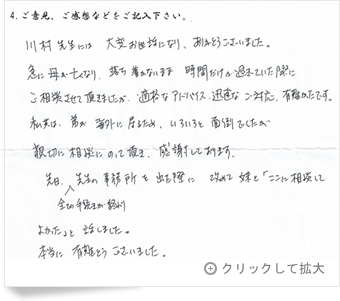 4.ご意見、ご感想などをご記入下さい。
川村先生には 大変お世話になり、ありがとうございました。
急に母が亡くなり、落ち着かないまま 時間だけが過ぎていた際に
ご相談させて頂きましたが、適格なアドバイス、迅速なご対応、有難かったです。
私共は、弟が海外に居るため、いろいろと面倒でしたが
親切に相談にのって頂き、感謝しております。
先日、先生の事務所を出た際に 改めて妹と「ここに相談して
全ての手続きが終わり
よかった」と話しました。
本当に 有難とうございました。
クリックして拡大